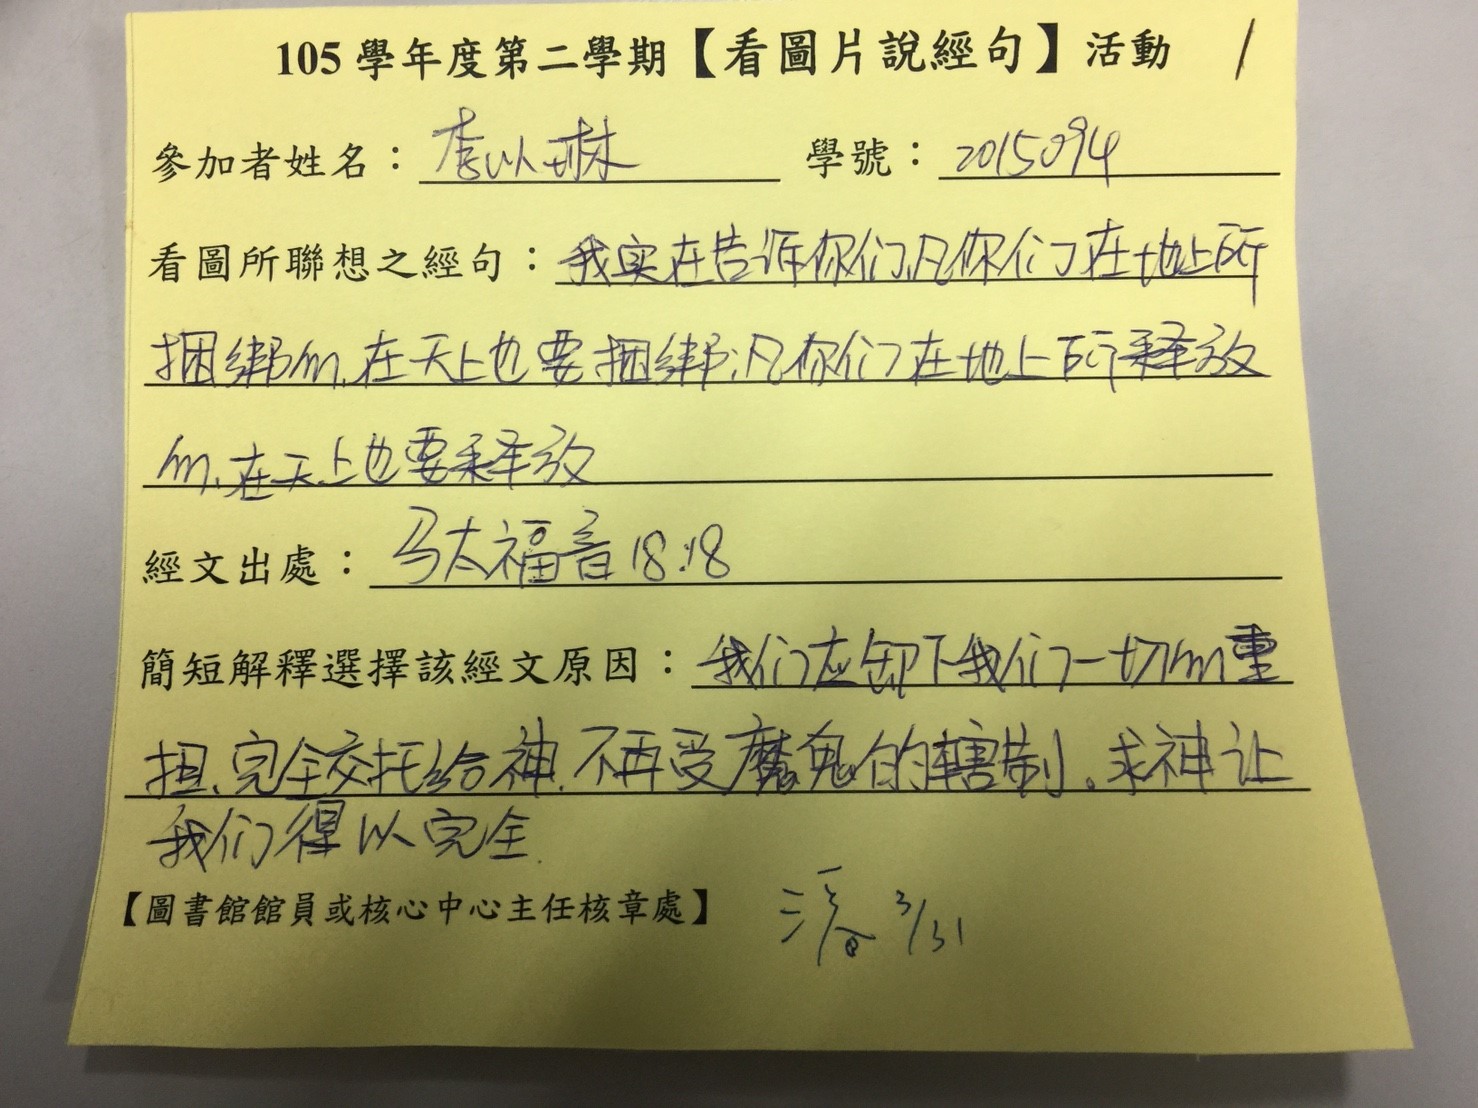 105 學年度第二學期【看圖片說經句】活動 1
參加者姓名：李以琳 學號：2015094
看圖所聯想之經句：我实在告诉你们,凡你们在地上所
捆绑的,在天上也要捆绑;凡你们在地上所释放
的,在天上也要释放
經文出處：马太福音18:18
簡短解釋選擇該經文原因：我们应卸下我们一切的重
担,完全交托给神,不再受魔鬼的辖制。求神让
我们得以完全.
【圖書館館員或核心中心主任核章處】 3/31